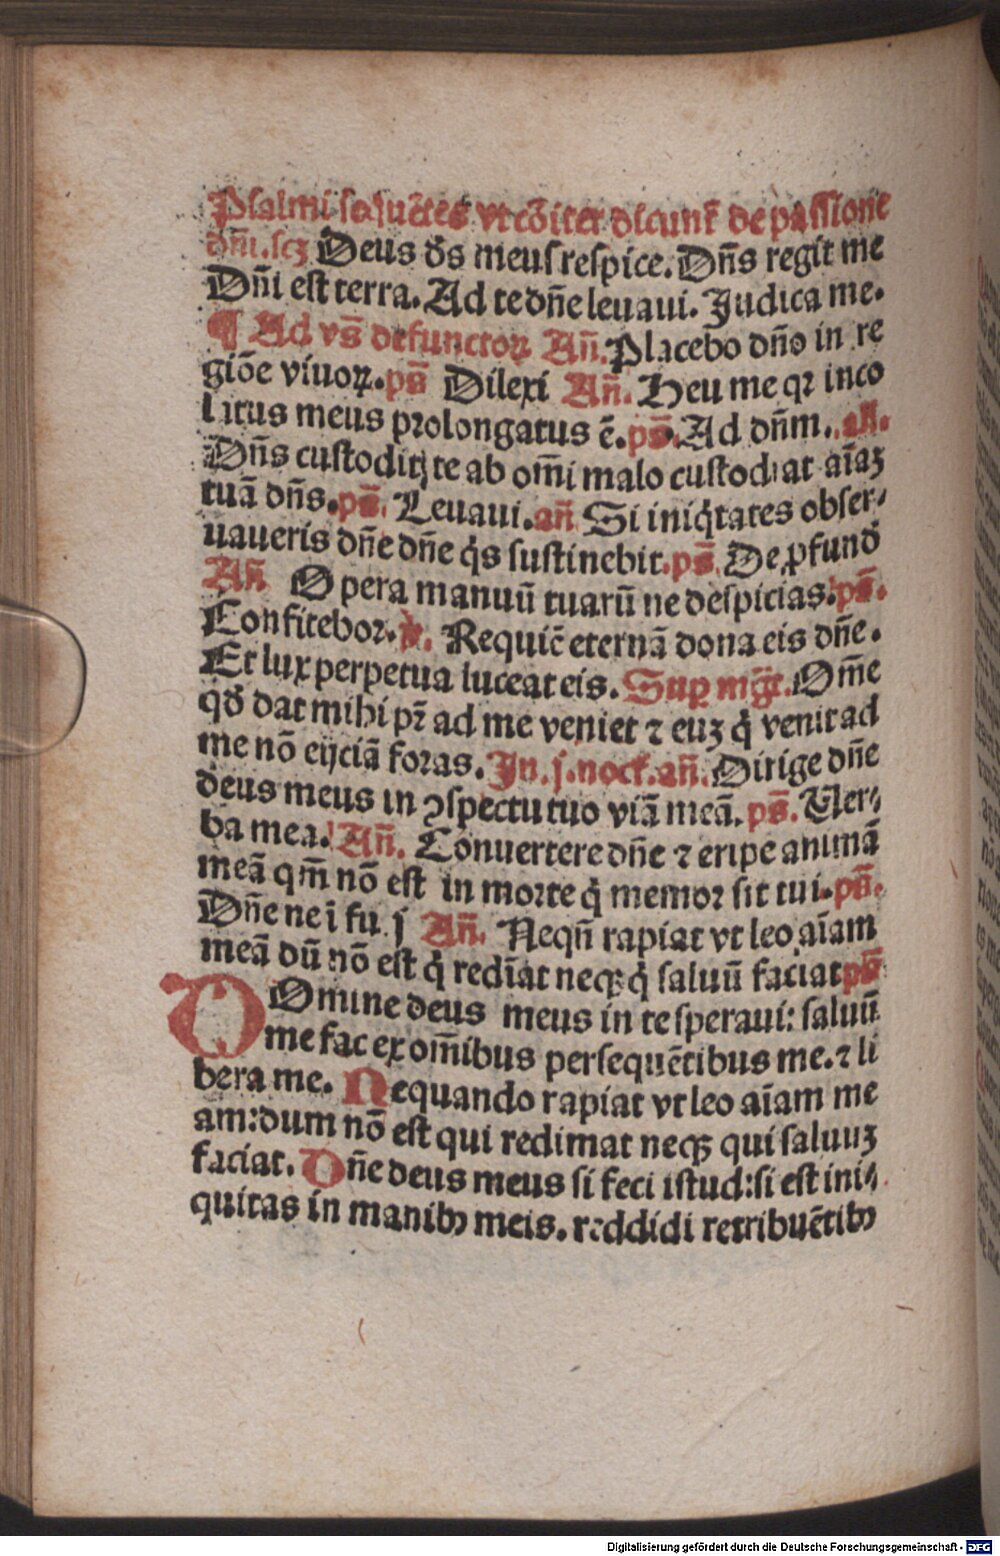 Psalmi seq̄uẽtes vt cõiter dicunt᷑ de passione
dñi.scȝ Deus d̄s meus respice. Dñs regit me
Dñi est terra. Ad te dñe leuaui. Judica me.
¶ Ad vs̄ defunctoꝝ Añ. Placebo dño in re
giõe viuoꝝ. ps̄ Dilexi Añ. Heu me qꝛ inco
latus meus prolongatus ē. ps̄. Ad dñm. añ.
Dñs custodit te ab om̄i malo custodiat aīaȝ
tuā dñs. ps̄. Leuaui. añ Si iniq̇tates obser⸗
uaueris dñe dñe q̇s sustinebit. ps̄. De ꝓfund
Añ Opera manuū tuarū ne despicias. ps̄.
Confitebor. ℣. Requiē eternā dona eis dñe.
Et lux perpetua luceat eis. Suꝑ mg̅t. Om̄e
qd̄ dat mihi pr̄ ad me veniet ⁊ euȝ q̇ venit ad
me nõ eijciā foras. Jn .j. noct. añ. Dirige dñe
deus meus in ꝯspectu tuo viā meā. ps̄. Uer⸗
ba mea. Añ. Conuertere dñe ⁊ eripe animā
meā qm̄ nõ est in morte q̇ memor sit tui. ps̄.
Dñe ne ī fu. j Añ. Nequñ rapiat vt leo aīam
meā dū nõ est q̇ redīat neqꝫ q̇ saluū faciat ps̄
DOmine deus meus in te speraui: saluū
me fac ex om̄ibus persequẽtibus me. ⁊ li
bera me. Nequando rapiat vt leo aīam me
am: dum nõ est qui redimat neqꝫ qui saluuȝ
faciat. Dñe deus meus si feci istud: si est ini⸗
quitas in manibꝰ meis. reddidi retribuẽtibꝰ
Digitalisierung gefördert durch die Deutsche Forschungsgemeinschaft - DFG